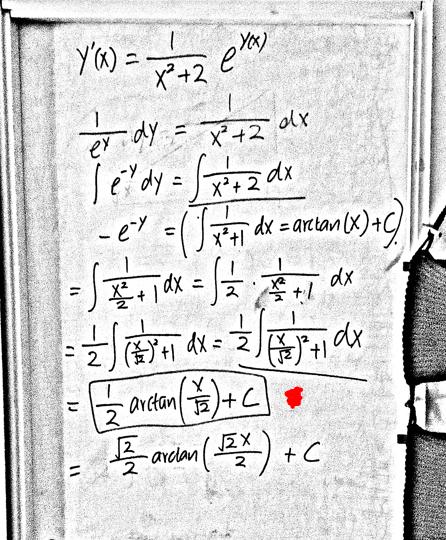 y'(x) = 1/(x²+2) e^(y(x))
1/e^y dy = 1/(x²+2) dx
∫ e^(-y) dy = ∫ 1/(x²+2) dx
-e^(-y) = (∫ 1/(x²+1) dx = arctan(x)+C)
= ∫ 1/(x²/2 + 1) dx = ∫ 1/2 · 1/(x²/2 + 1) dx
= 1/2 ∫ 1/((x/√2)²+1) dx = 1/2 ∫ 1/((x/√2)²+1) dx
= 1/2 arctan(x/√2) + C
= √2/2 arctan(√2x/2) + C